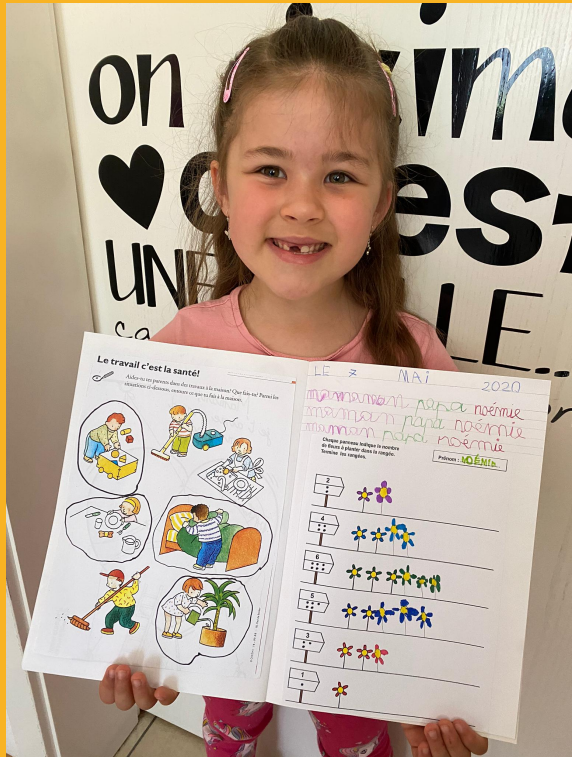 on
est
UNE
LLE...
ca
er
Le travail c'est la santé!
Aides-tu tes parents dans des travaux à la maison? Que fais-tu? Parmi les
situations ci-dessous, entoure ce que tu fais à la maison.
LE 7 MAI 2020
mamaman papa noémie
maman papa noémie
maman papa noémie
Chaque panneau indique le nombre
de fleurs à planter dans la rangée.
Termine les rangées.
Prénom : NOÉMIE
2
4
6
5
3
1